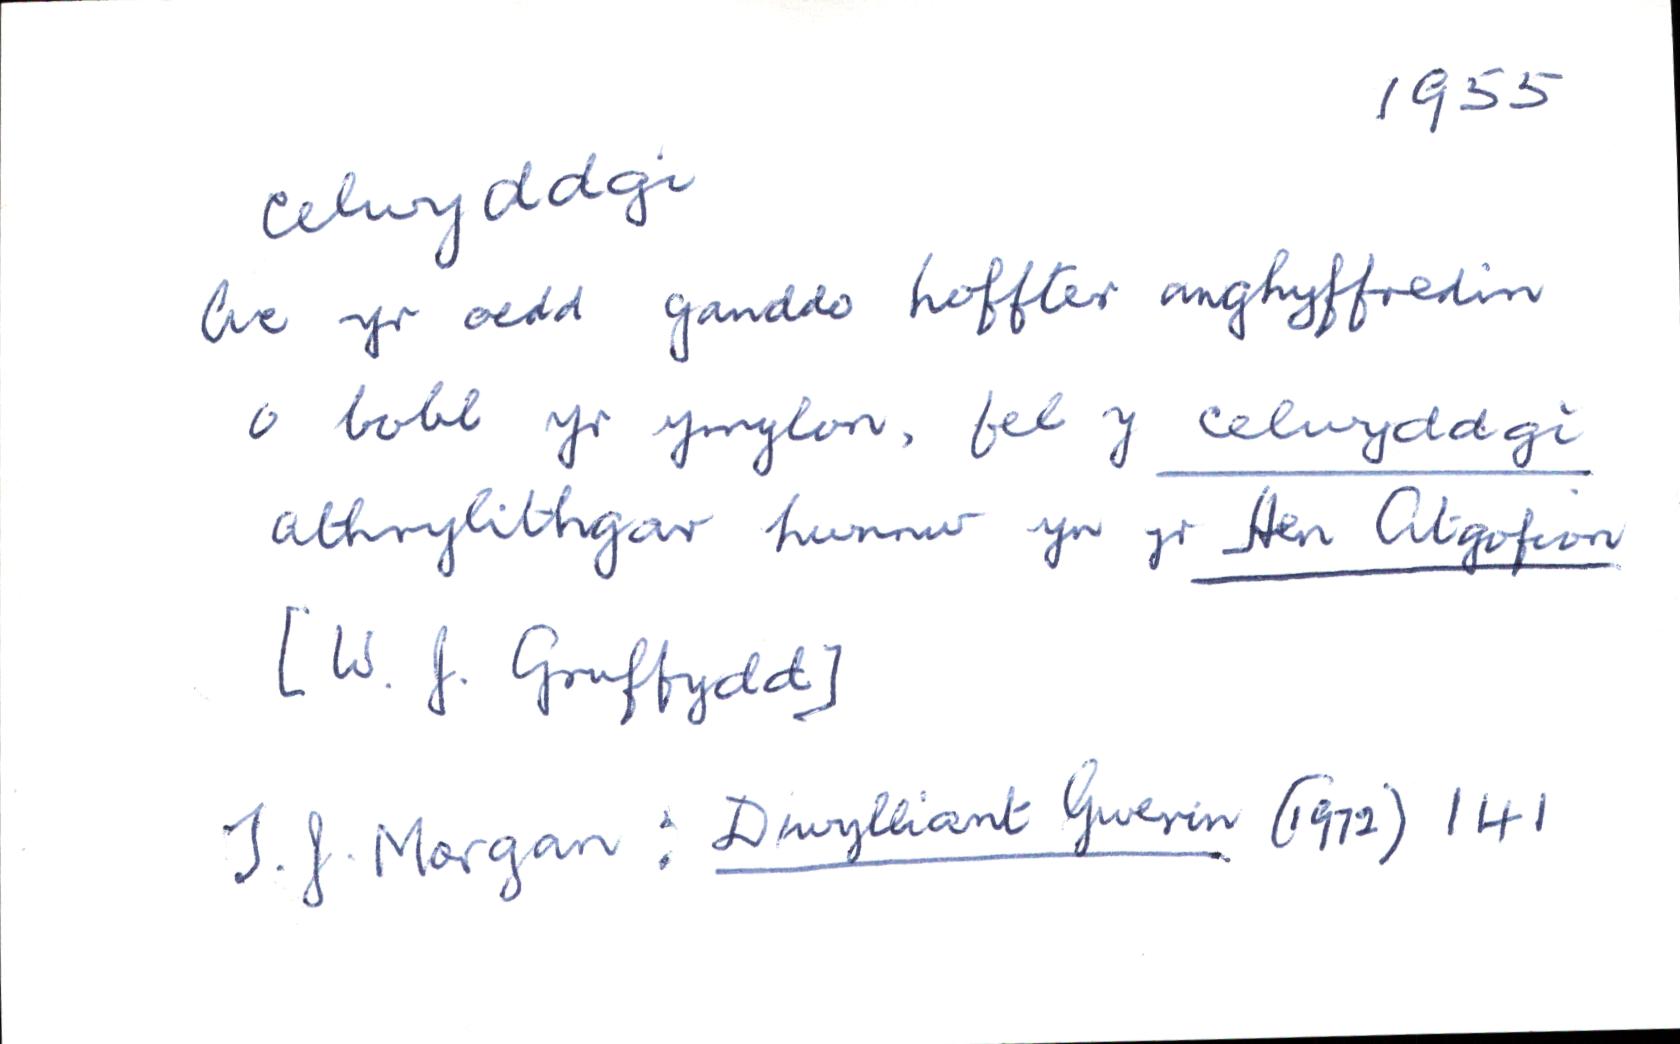 1955
celwyddgi
Ac yr oedd ganddo hoffter anghyffredin
o bobl yr ymylon, fel y celwyddgi
athrylithgar hwnnw yn yr Hen Atgofion
[W. J. Gruffydd]
T. J. Morgan : Diwylliant Gwerin (1972) 141